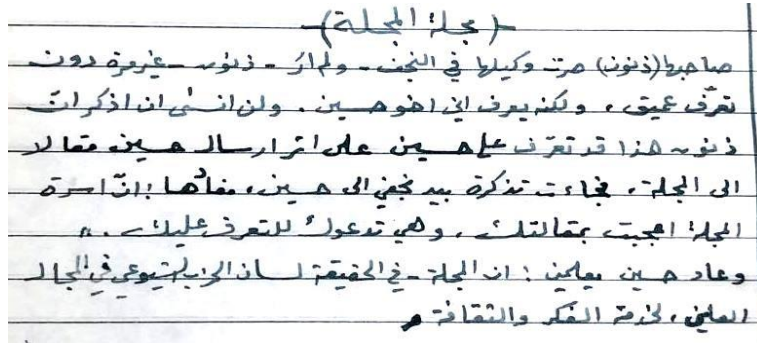 -(مجلة المجلة)-
صاحبها (ذنون) صرت وكيلها في النجف - ولم أرَ - ذنون - غير مرة دون
تعرّف عميق، ولكنه يعرف اني اخو حسين. ولن انسى ان اذكر انّ
ذنون هذا قد تعرّف على حسين على اثر ارسال حسين مقالا
الى المجلة، فجاءت تذكرة بيد نجفي الى حسين، مفادُها: انّ اسرة
المجلة اعجبت بمقالتك، وهي تدعوك للتعرف عليك.."
وعاد حسين يعلمني: ان المجلة - في الحقيقة لسان الحزب الشيوعي في المجال
العلني، لخدمة الفكر والثقافة